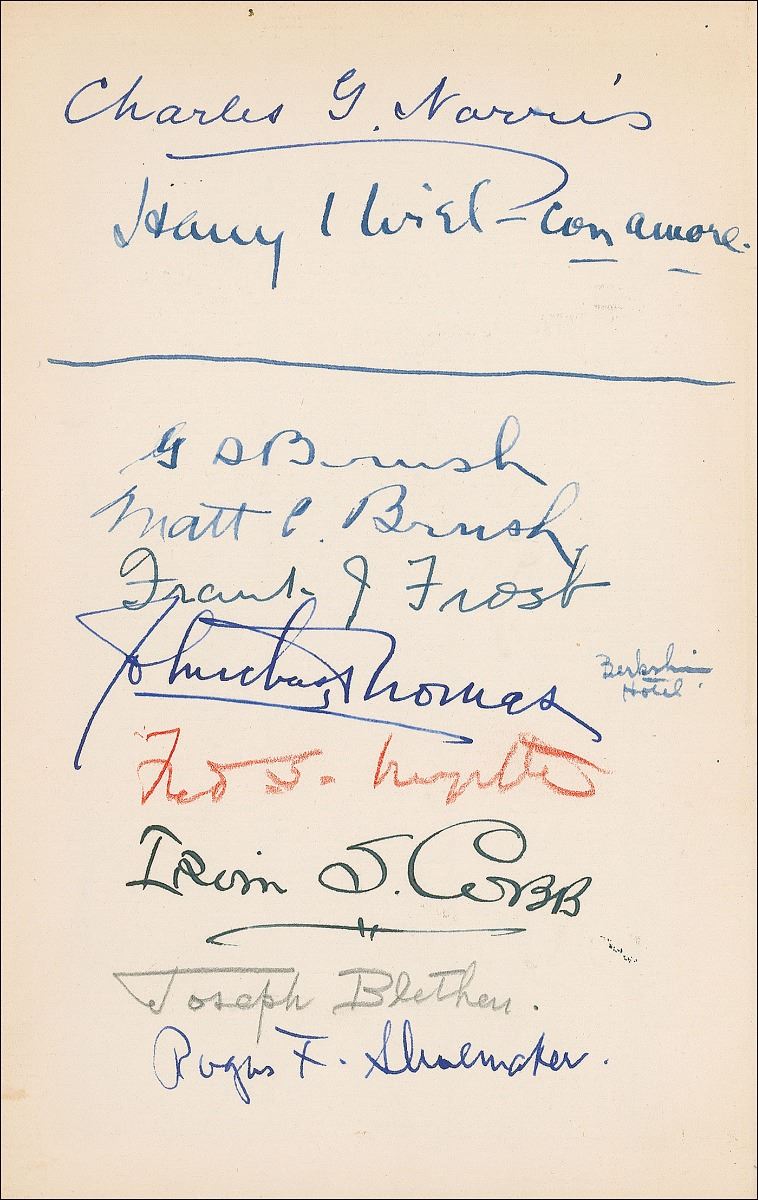 Charles G. Norris
Harry I Wiel - con amore.
G S Brush
Matt C. Brush
Frank J Frost
John Charles Thomas
Berkshire
Hotel
Fred S.
Irvin S. Cobb
Joseph Blethen.
F. Shoemaker.